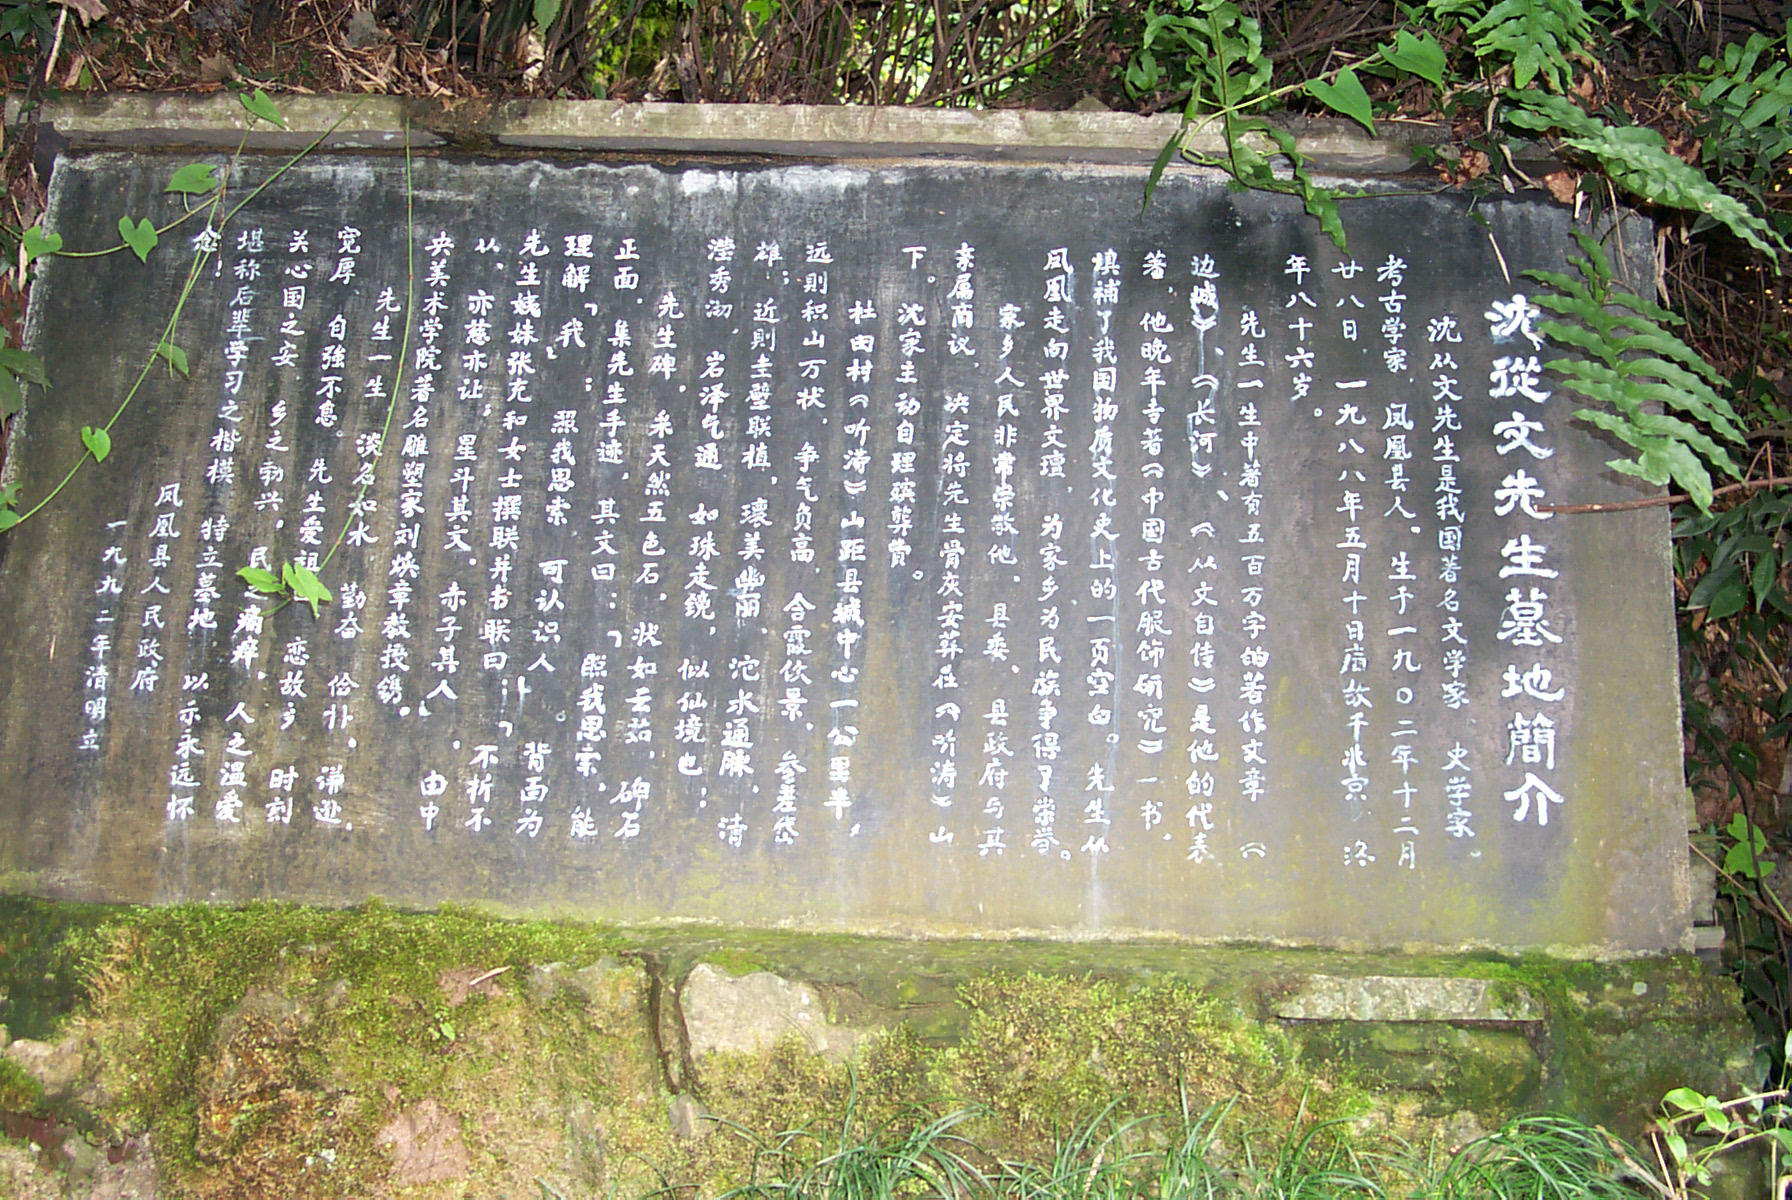 沈從文先生墓地簡介
沈从文先生是我国著名文学家、史学家、
考古学家,凤凰县人。生于一九〇二年十二月
廿八日,一九八八年五月十日病故于北京,终
年八十六岁。
先生一生中著有五百万字的著作文章《
边城》、《长河》、《从文自传》是他的代表
著,他晚年专著《中国古代服饰研究》一书,
填补了我国物质文化史上的一页空白。先生从
凤凰走向世界文壇,为家乡为民族争得了崇誉。
家乡人民非常崇敬他,县委、县政府与其
亲属商议,决定将先生骨灰安葬在《听涛》山
下。沈家主动自理殡葬費。
杜田村《听涛》山距县城中心一公里半,
远則积山万状,争气负高,含霞佽景,参差岱
雄;近則圭壁联植,瓌美幽丽,沱水通脉,清
瀅秀沏,岩泽气通,如珠走镜,似仙境也;
先生碑,采天然五色石,状如云茹,碑石
正面,集先生手迹,其文曰:「照我思索,能
理解「我」;照我思索,可认识人」。背面为
先生姨妹张充和女士撰联并书联曰:「不折不
从,亦慈亦让;星斗其文,赤子其人」。由中
央美术学院著名雕塑家刘焕章教授鐫。
先生一生,淡名如水,勤奋,俭朴,谦逊,
宽厚,自強不息。先生爱祖,恋故乡,时刻
关心国之安,乡之勃兴,民之痛痒,人之温爱
堪称后輩学习之楷模,特立墓地,以示永远怀
念!
凤凰县人民政府
一九九二年清明立